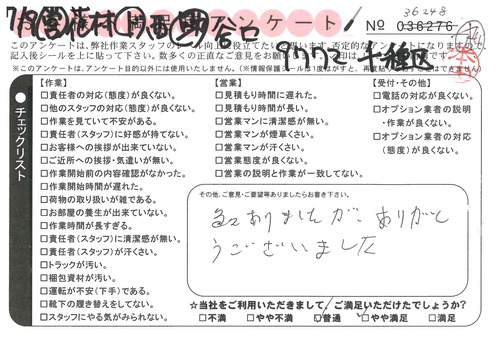 アンケート
№ 036276
36248
千種区
このアンケートは、弊社作業スタッフのレベル向上に役立てたい
記入後シールを上に貼って下さい。
※このアンケートは、アンケート目的以外には使用いたしません。
チェックリスト
【作業】
□責任者の対応(態度)が良くない。
□他のスタッフの対応(態度)が良くない。
□作業を見ていて不安がある。
□責任者(スタッフ)に好感が持てない。
□お客様への挨拶が出来ていない。
□ご近所への挨拶・気遣いが無い。
□作業開始前の内容確認がなかった。
□作業開始時間が遅れた。
□荷物の取り扱いが雑である。
□お部屋の養生が出来ていない。
□作業時間が長すぎる。
□責任者(スタッフ)に清潔感が無い。
□責任者(スタッフ)が汗くさい。
□トラックが汚い。
□梱包資材が汚い。
□運転が不安(下手)である。
□靴下の履き替えをしてない。
□スタッフにやる気がみられない。
【営業】
□見積もり時間に遅れた。
□見積もり時間が長い。
□営業マンに清潔感が無い。
□営業マンが煙草くさい。
□営業マンが汗くさい。
□営業態度が良くない。
□営業の説明と作業が一致してない。
【受付・その他】
□電話の対応が良くない。
□オプション業者の説明
・作業が良くない。
□オプション業者の対応
(態度)が良くない。
その他、ご意見・ご要望等ありましたらお書き下さい。
ありましたが、ありがと
うございました
☆当社をご利用いただきまして/ご満足いただけたでしょうか?
□不満 □やや不満 □普通 □やや満足 □満足